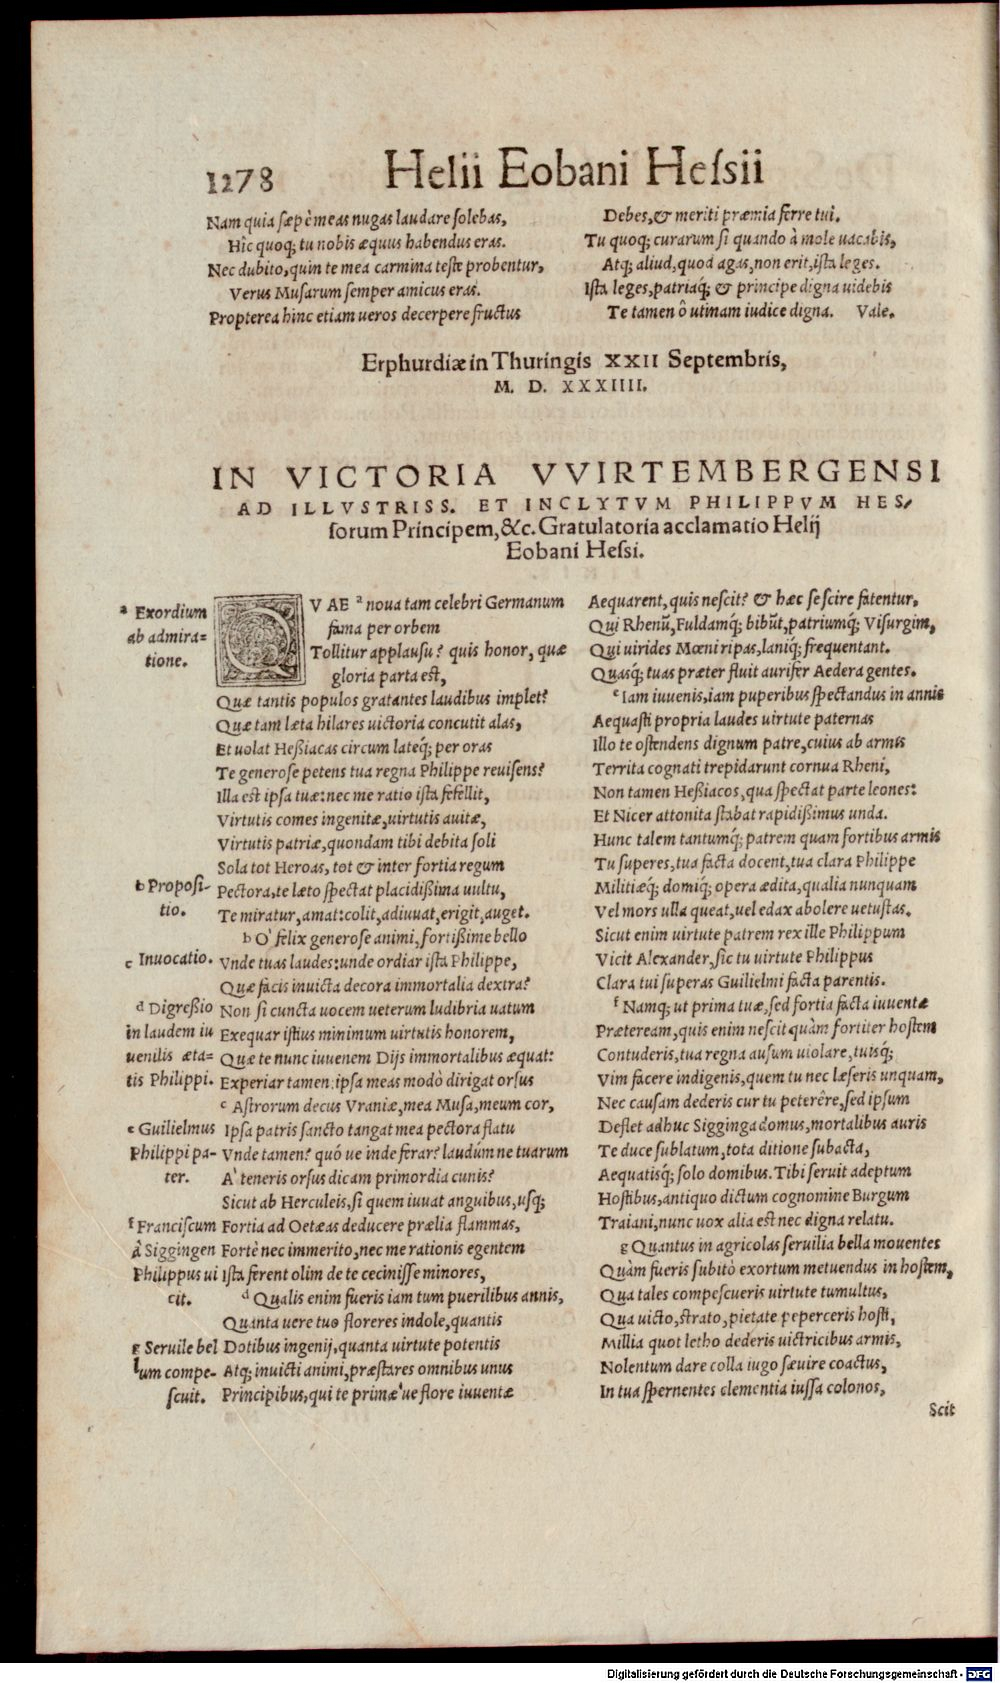 1278 Helii Eobani Hessii
Nam quia sæpè meas nugas laudare solebas,
Hîc quoq; tu nobis æquus habendus eras.
Nec dubito, quin te mea carmina teste probentur,
Verus Musarum semper amicus eras.
Propterea hinc etiam ueros decerpere fructus
Debes, & meriti præmia ferre tui.
Tu quoq; curarum si quando à mole uacabis,
Atq; aliud, quod agas, non erit, ista leges.
Ista leges, patriaq́; & principe digna uidebis
Te tamen ô utinam iudice digna. Vale.
Erphurdiæ in Thuringis XXII Septembris,
M. D. XXXIIII.
IN VICTORIA VVIRTEMBERGENSI
AD ILLVSTRISS. ET INCLYTVM PHILIPPVM HES-
sorum Principem, &c. Gratulatoria acclamatio Helij
Eobani Hessi.
a Exordium
ab admira=
tione.
b Proposi-
tio.
c Inuocatio.
d Digreßio
in laudem iu
uenilis æta=
tis Philippi.
e Guilielmus
Philippi pa-
ter.
f Franciscum
à Siggingen
Philippus ui
cit.
g Seruile bel
lum compe-
scuit.
QVAE a noua tam celebri Germanum
fama per orbem
Tollitur applausu? quis honor, quæ
gloria parta est,
Quæ tantis populos gratantes laudibus implet?
Quæ tam læta hilares uictoria concutit alas,
Et uolat Heßiacas circum lateq́; per oras
Te generose petens tua regna Philippe reuisens?
Illa est ipsa tuæ: nec me ratio ista fefellit,
Virtutis comes ingenitæ, uirtutis auitæ,
Virtutis patriæ, quondam tibi debita soli
Sola tot Heroas, tot & inter fortia regum
Pectora, te læto spectat placidißima uultu,
Te miratur, amat: colit, adiuuat, erigit, auget.
b O' felix generose animi, fortißime bello
Vnde tuas laudes: unde ordiar ista Philippe,
Quæ facis inuicta decora immortalia dextra?
Non si cuncta uocem ueterum ludibria uatum
Exequar istius minimum uirtutis honorem,
Quæ te nunc iuuenem Dijs immortalibus æquat:
Experiar tamen: ipsa meas modò dirigat orsus
c Astrorum decus Vraniæ, mea Musa, meum cor,
Ipsa patris sancto tangat mea pectora flatu
Vnde tamen? quó ue inde ferar? laudúm ne tuarum
A' teneris orsus dicam primordia cunis?
Sicut ab Herculeis, si quem iuuat anguibus, usq;
Fortia ad Oetæas deducere prælia flammas,
Fortè nec immerito, nec me rationis egentem
Ista ferent olim de te cecinisse minores,
d Qualis enim fueris iam tum puerilibus annis,
Quanta uere tuo floreres indole, quantis
Dotibus ingenij, quanta uirtute potentis
Atq; inuicti animi, præstares omnibus unus
Principibus, qui te primæ'ue flore iuuentæ
Aequarent, quis nescit? & hæc se scire fatentur,
Qui Rhenū, Fuldamq́; bibūt, patriumq́; Visurgim,
Qui uirides Mœni ripas, laniq́; frequentant.
Quasq́; tuas præter fluit aurifer Aedera gentes.
e Iam iuuenis, iam puperibus spectandus in annis
Aequasti propria laudes uirtute paternas
Illo te ostendens dignum patre, cuius ab armis
Territa cognati trepidarunt cornua Rheni,
Non tamen Heßiacos, qua spectat parte leones:
Et Nicer attonita stabat rapidißimus unda.
Hunc talem tantumq́; patrem quam fortibus armis
Tu superes, tua facta docent, tua clara Philippe
Militiæq́; domiq́; opera ædita, qualia nunquam
Vel mors ulla queat, uel edax abolere uetustas.
Sicut enim uirtute patrem rex ille Philippum
Vicit Alexander, sic tu uirtute Philippus
Clara tui superas Guilielmi facta parentis.
f Namq; ut prima tuæ, sed fortia facta iuuentæ
Præteream, quis enim nescit quàm fortiter hostem
Contuderis, tua regna ausum uiolare, tuisq́;
Vim facere indigenis, quem tu nec læseris unquam,
Nec causam dederis cur tu peterêre, sed ipsum
Deflet adhuc Sigginga domus, mortalibus auris
Te duce sublatum, tota ditione subacta,
Aequatisq́; solo domibus. Tibi seruit adeptum
Hostibus, antiquo dictum cognomine Burgum
Traiani, nunc uox alia est nec digna relatu.
g Quantus in agricolas seruilia bella mouentes
Quàm fueris subitò exortum metuendus in hostem,
Qua tales compescueris uirtute tumultus,
Qua uicto, strato, pietate peperceris hosti,
Millia quot letho dederis uictricibus armis,
Nolentum dare colla iugo sæuire coactus,
In tua spernentes clementia iussa colonos,
Scit
Digitalisierung gefördert durch die Deutsche Forschungsgemeinschaft - DFG